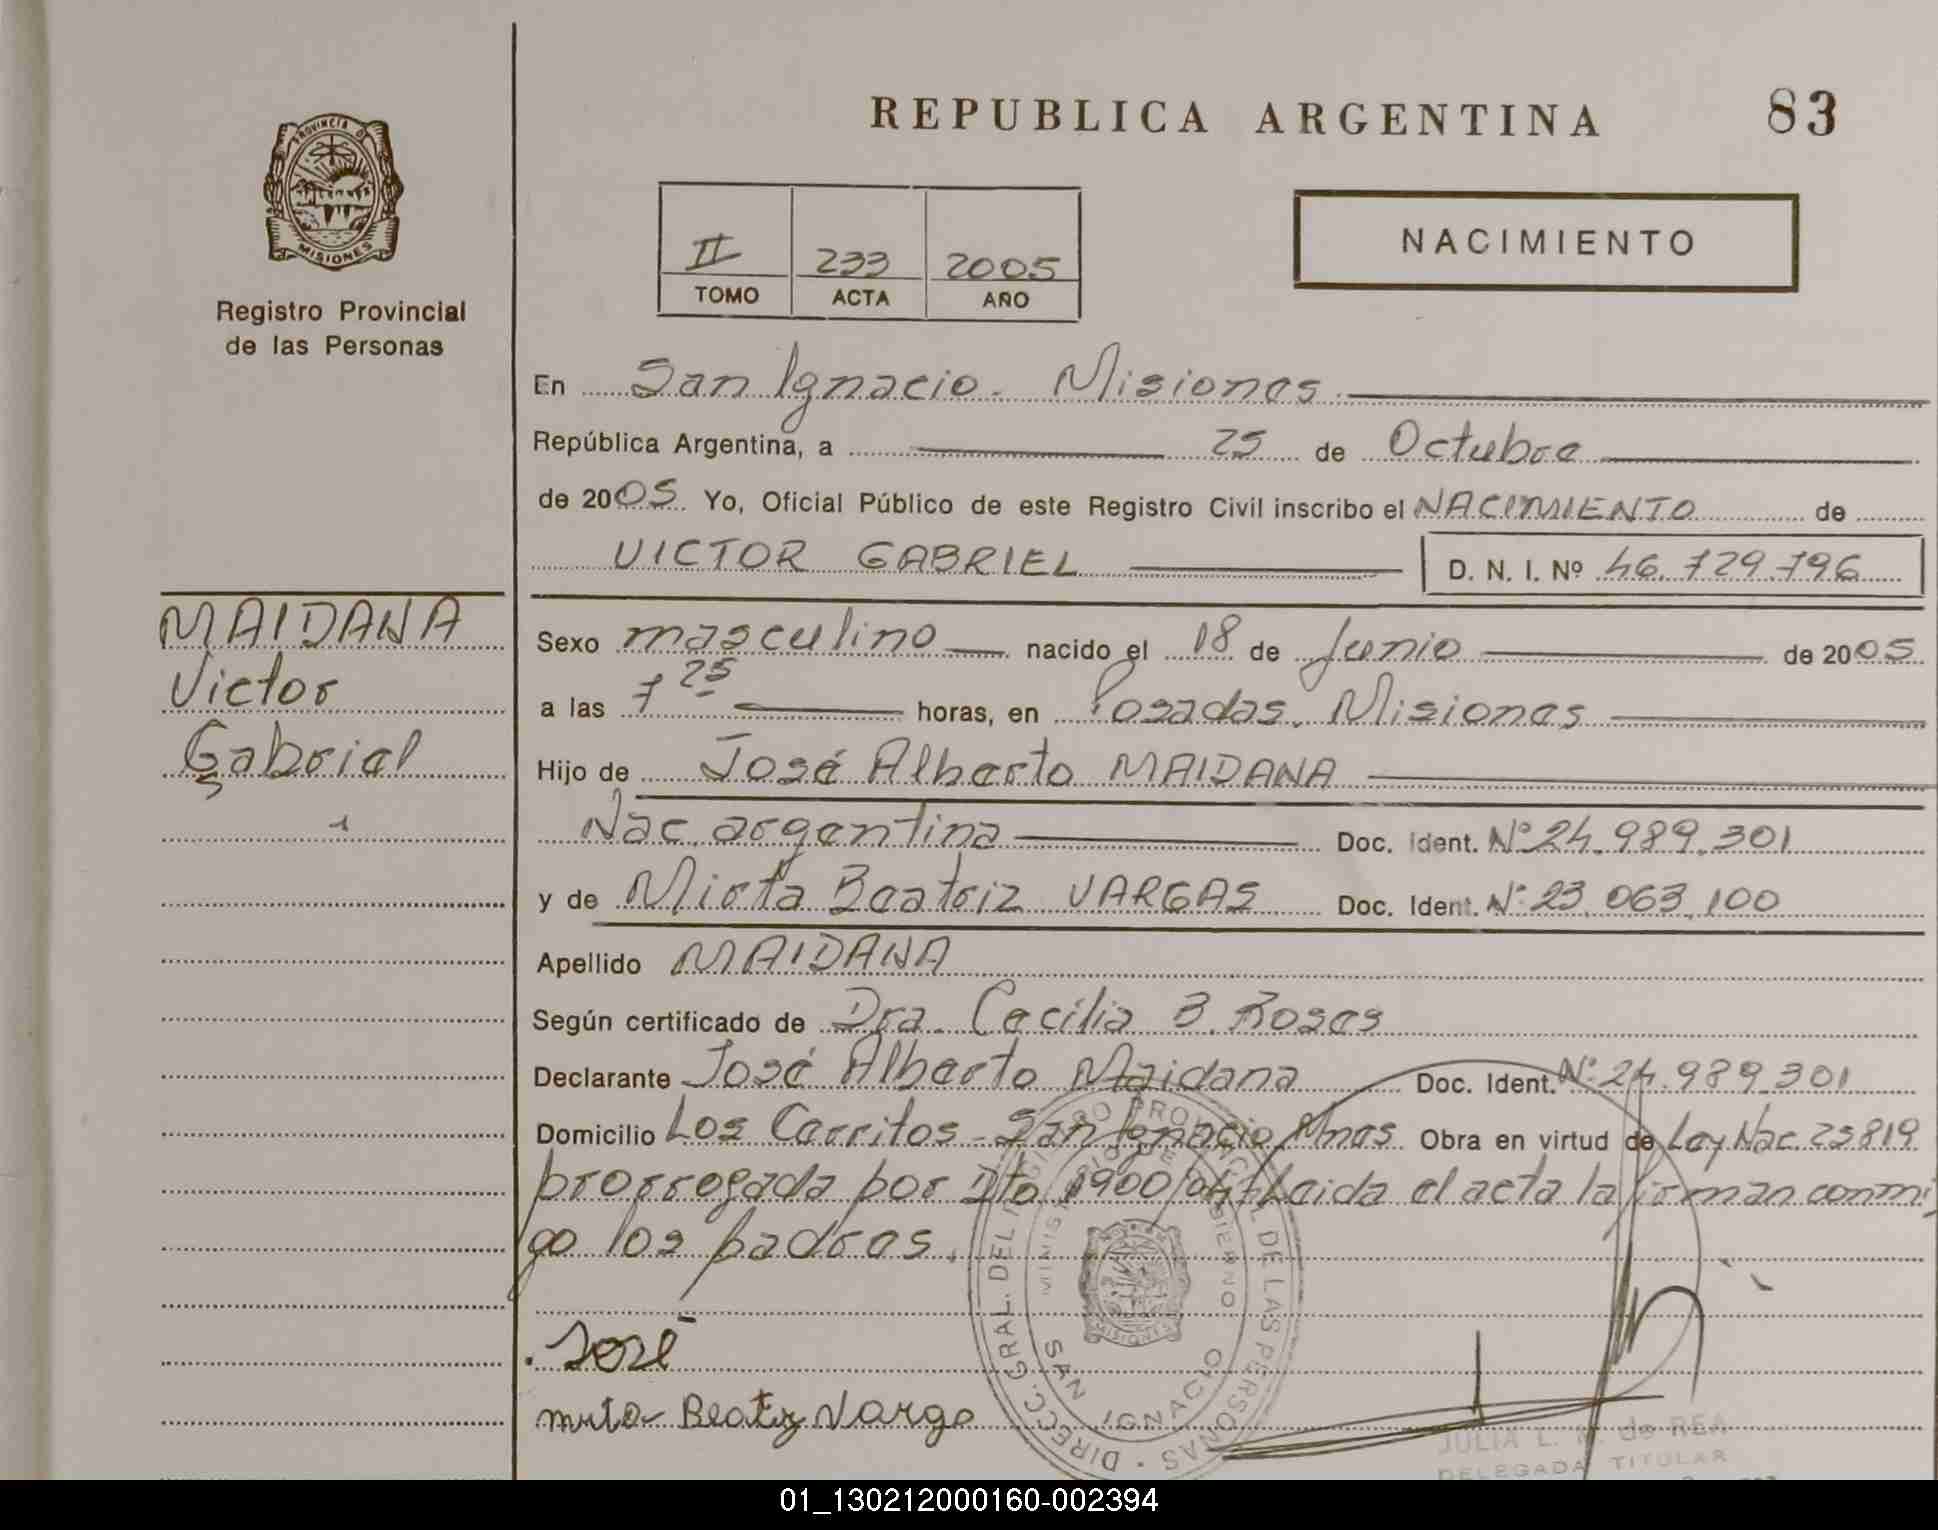 REPUBLICA ARGENTINA 83
PROVINCIA DE
MISIONES
Registro Provincial
de las Personas
II 233 2005
TOMO ACTA AÑO
NACIMIENTO
En San Ignacio. Misiones
República Argentina, a 25 de Octubre
de 2005 Yo, Oficial Público de este Registro Civil inscribo el NACIMIENTO de
VICTOR GABRIEL D. N. I. Nº 46.729.796
MAIDANA
Victor
Gabriel
Sexo masculino nacido el 18 de Junio de 2005
a las 7 25 horas, en Posadas, Misiones
Hijo de José Alberto MAIDANA
Nac. argentina Doc. Ident. Nº 24.989.301
y de Mirta Beatriz VARGAS Doc. Ident. Nº 23.063.100
Apellido MAIDANA
Según certificado de Dra. Cecilia B. Rosas
Declarante José Alberto Maidana Doc. Ident. Nº 24.989.301
Domicilio Los Cerritos - San Ignacio Mnes Obra en virtud de Ley Nac. 25819
prorrogada por Dto 1900/04 Leida el acta la firman conmi
go los padres.
José
mirta Beatiz Vargas
DIRECC. GRAL. DEL REGISTRO PROVINCIAL DE LAS PERSONAS
MINISTERIO DE GOBIERNO
MISIONES
SAN IGNACIO
JULIA L. de REA
DELEGADA TITULAR
01_130212000160-002394